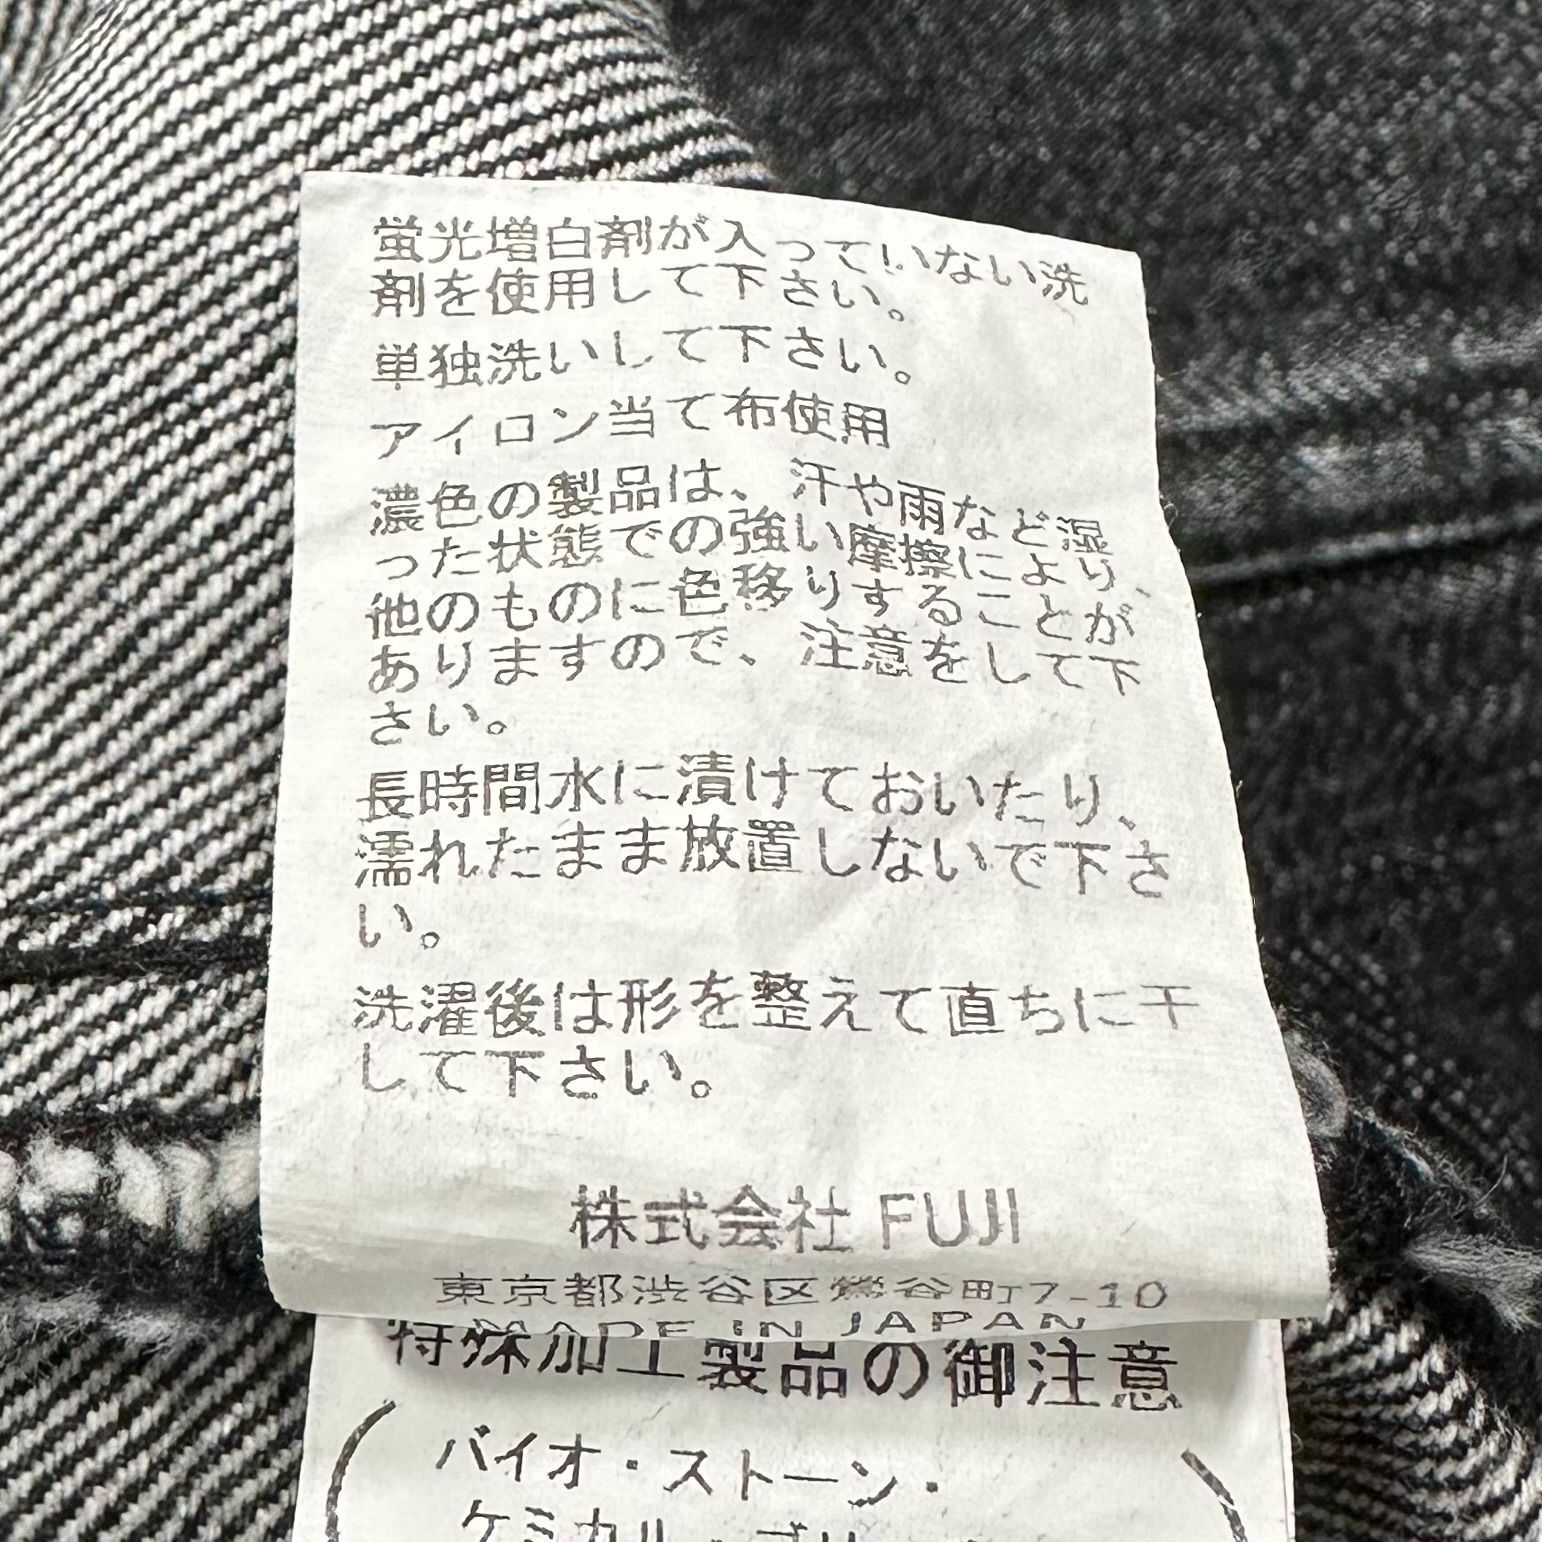 蛍光増白剤が入っていない洗
剤を使用して下さい。
単独洗いして下さい。
アイロン当て布使用
濃色の製品は、汗や雨など湿
った状態での強い摩擦により、
他のものに色移りすることが
ありますので、注意をして下
さい。
長時間水に漬けておいたり、
濡れたまま放置しないで下さ
い。
洗濯後は形を整えて直ちに干
して下さい。
株式会社 FUJI
東京都渋谷区鶯谷町7-10
MADE IN JAPAN
特殊加工製品の御注意
バイオ・ストーン・
ケミカル・